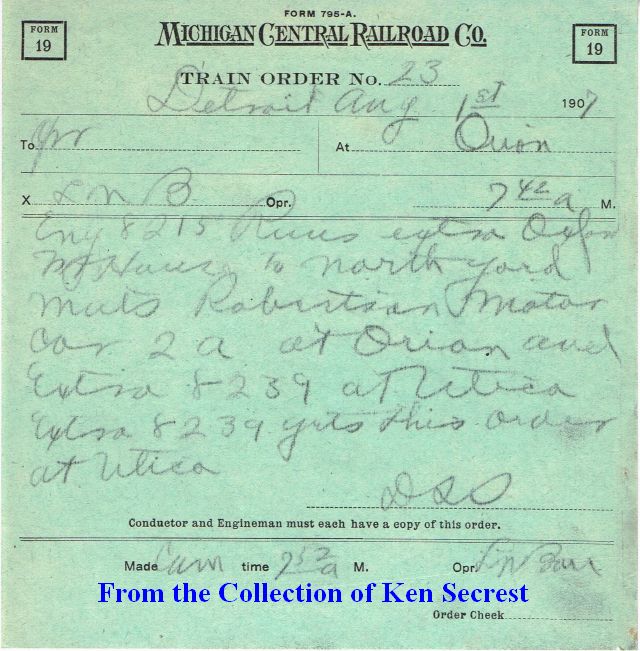 FORM 795-A.
FORM 19
MICHIGAN CENTRAL RAILROAD CO.
FORM 19
TRAIN ORDER No. 23
Detroit Aug 1st 1907
To Opr At Orion
X L N B Opr. 7 42 a M.
Eng 8215 Runs extra Oxford
to North yard
meets Robertson Motor
Car 2 a at Orion and
Extra 8239 at Utica
Extra 8239 gets this order
at Utica
Conductor and Engineman must each have a copy of this order.
Made Com time 7 52 a M. Opr. L N Barr
From the Collection of Ken Secrest
Order Check